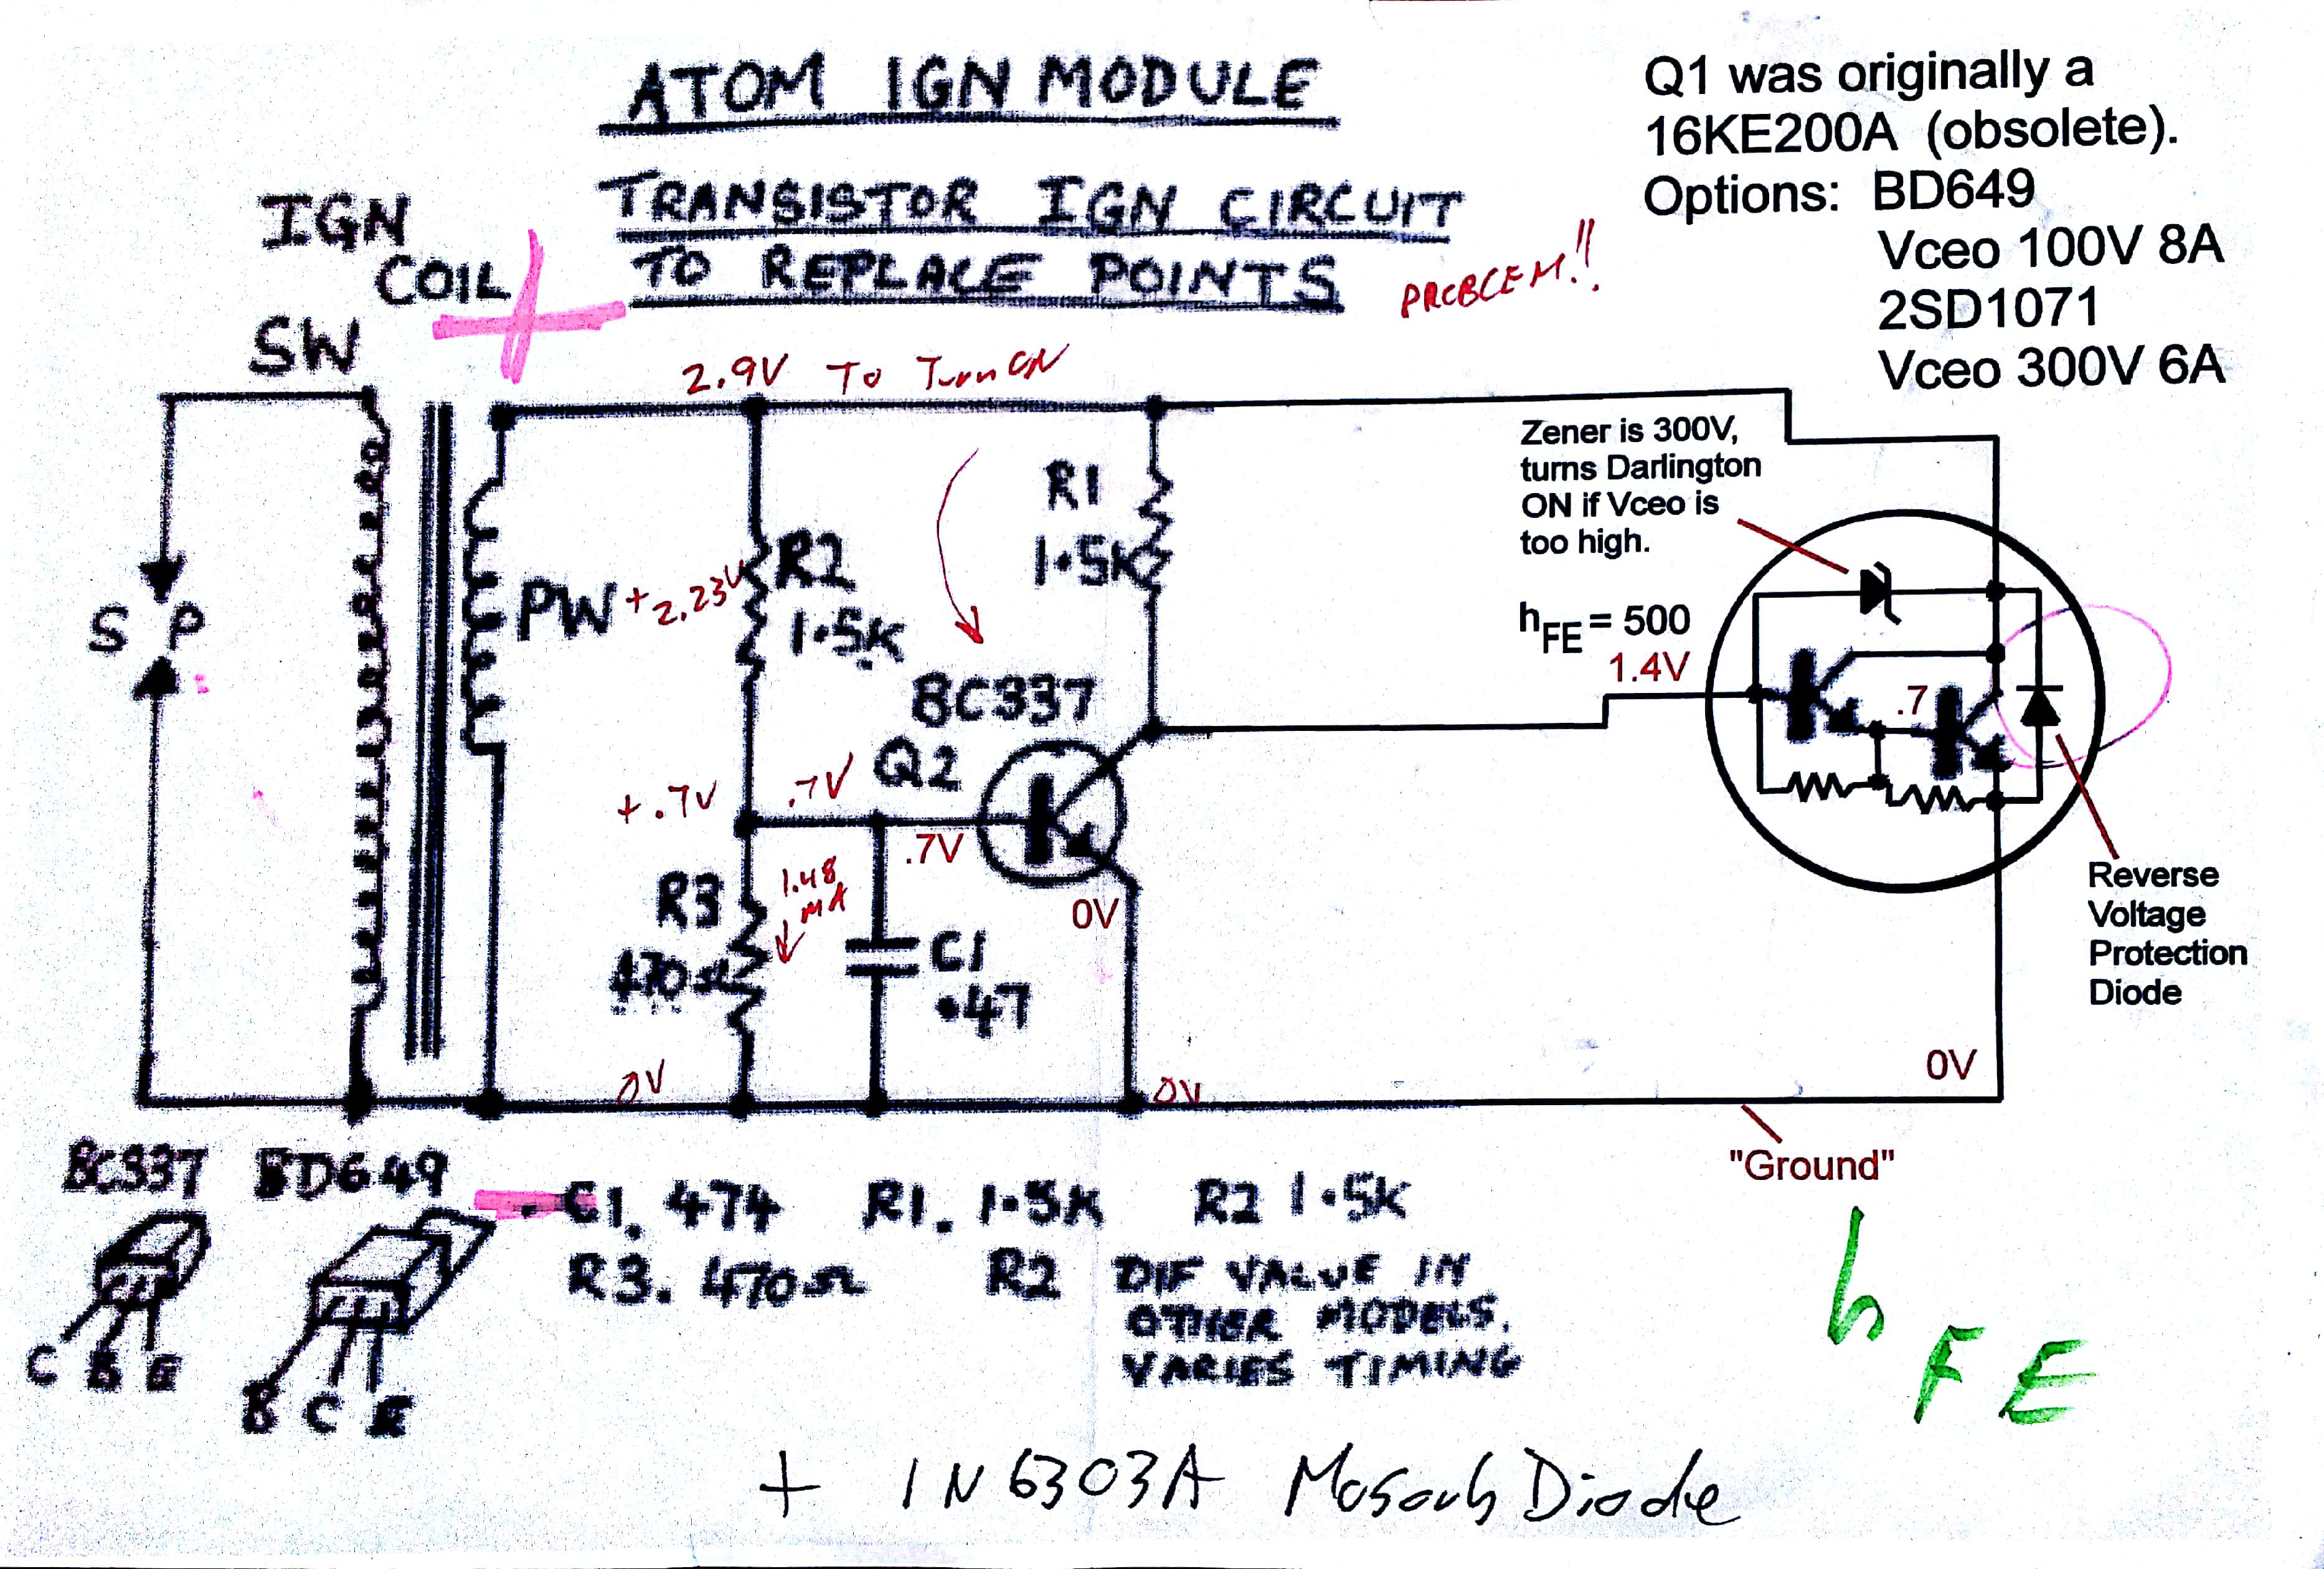 ATOM IGN MODULE
TRANSISTOR IGN CIRCUIT
TO REPLACE POINTS
PROBLEM!!
Q1 was originally a
16KE200A (obsolete).
Options: BD649
Vceo 100V 8A
2SD1071
Vceo 300V 6A
IGN
COIL
SW
2.9V To Turn ON
Zener is 300V,
turns Darlington
ON if Vceo is
too high.
hFE = 500
1.4V
.7
R1
1.5K
R2
1.5K
PW
+2.23V
S P
BC337
Q2
+.7V
.7V
.7V
0V
R3
470Ω
1.48
MA
C1
.47
Reverse
Voltage
Protection
Diode
0V
0V
0V
"Ground"
BC337
BD649
C1. 474 R1. 1.5K R2 1.5K
R3. 470Ω R2 DIF VALUE IN
OTHER MODELS.
VARIES TIMING
C B E
B C E
hFE
+ 1N6303A Mosorb Diode